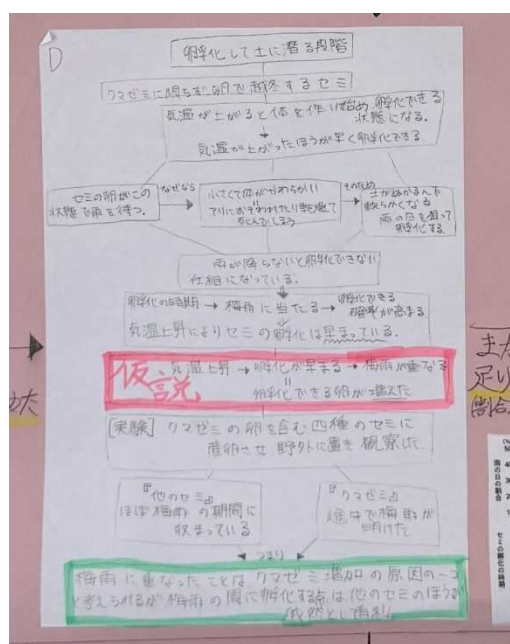 D
孵化して土に潜る段階
クマゼミに限らず卵で越冬するセミ
気温が上がると体を作り始め、孵化できる
状態になる.
気温が上がったほうが早く孵化できる.
セミの卵がこの
状態で雨を待つ.
なぜなら
小さくて体がやわらかい
アリにおそわれたり
死んでしまう
そのため
土がぬかるんで
軟らかくなる
雨の日を狙って
孵化する
雨が降らないと孵化できない
仕組になっている.
孵化の時期 → 梅雨に当たる → 孵化できる
確率が高まる
気温上昇によりセミの孵化は早まっている.
仮説
気温上昇 → 孵化が早まる → 梅雨が重なる
孵化できる卵が増えた
[実験] クマゼミの卵を含む四種のセミに
産卵させ 野外に置き 観察した.
『他のセミ』
ほぼ梅雨の期間に
収まっている
『クマゼミ』
途中で梅雨が
明けた
つまり
梅雨に重なったことはクマゼミ増加の原因の一つ
と考えられるが梅雨の間に孵化する点は他のセミのほうが
依然として有利
また
足り
割合
雨の日の割合
セミの孵化の時期